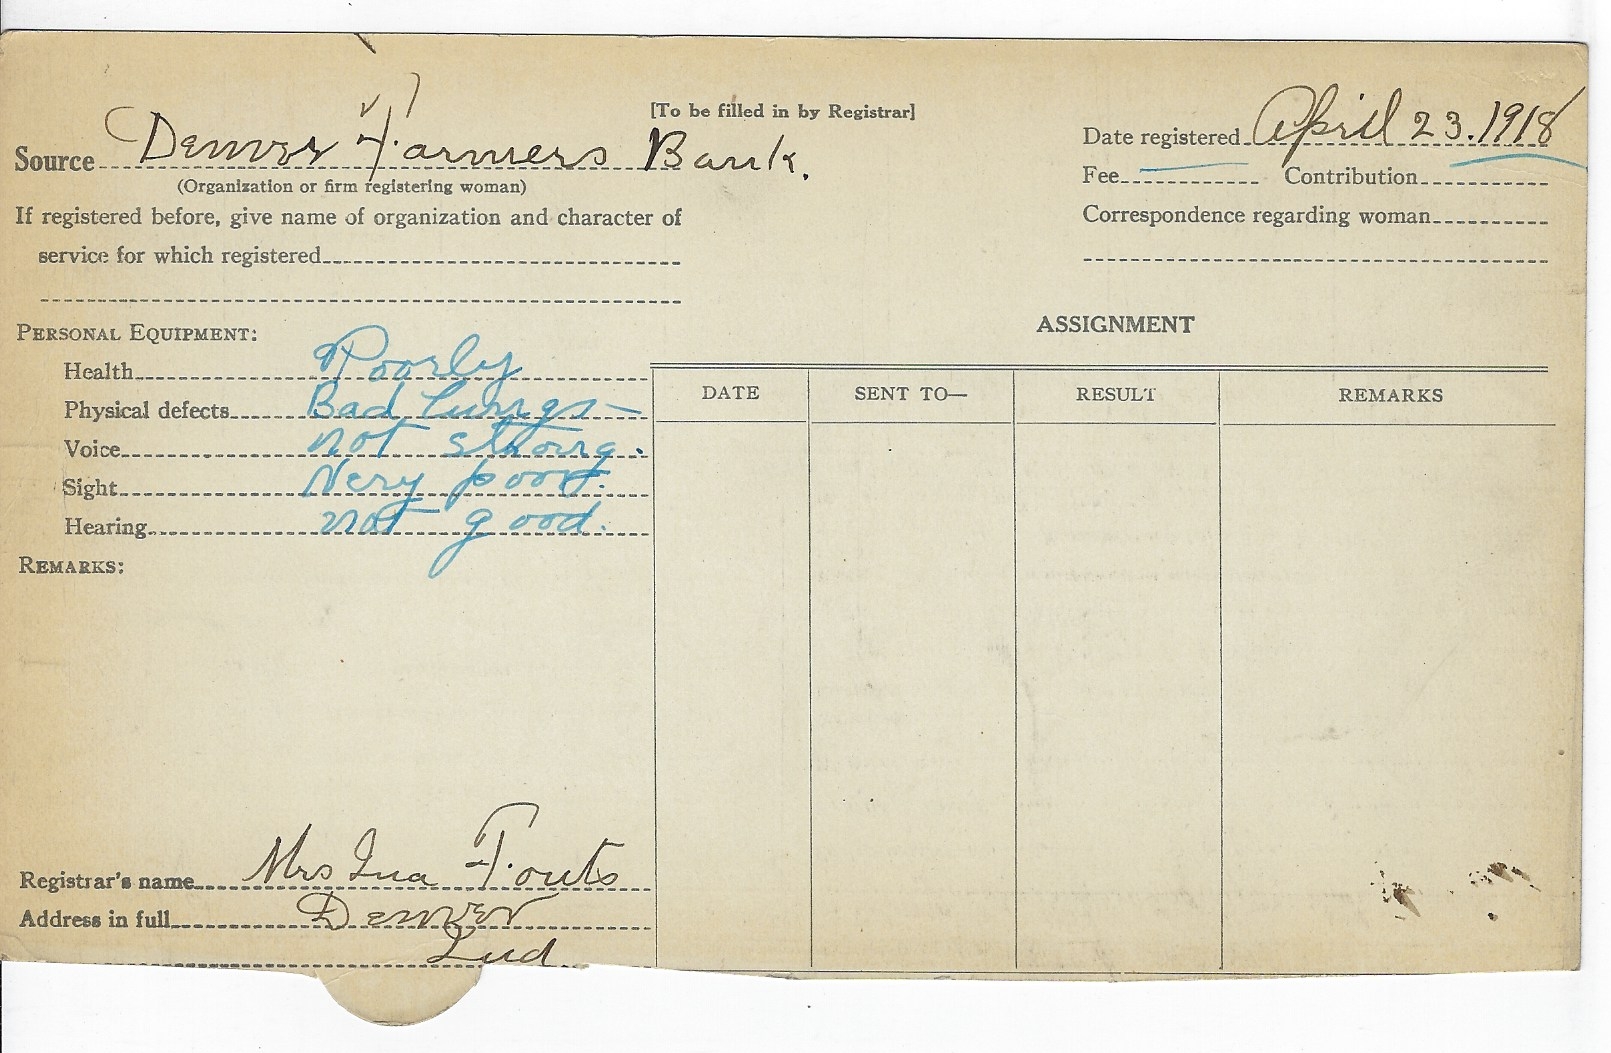 [To be filled in by Registrar]
Source Denver Farmers Bank.
(Organization or firm registering woman)
If registered before, give name of organization and character of
service for which registered
Date registered April 23. 1918
Fee Contribution
Correspondence regarding woman
PERSONAL EQUIPMENT:
Health Poorly
Physical defects Bad Lungs –
Voice not strong.
Sight Very poor.
Hearing not good.
REMARKS:
ASSIGNMENT
DATE SENT TO— RESULT REMARKS
Registrar's name Mrs Ina Fouts
Address in full Denver
Ind